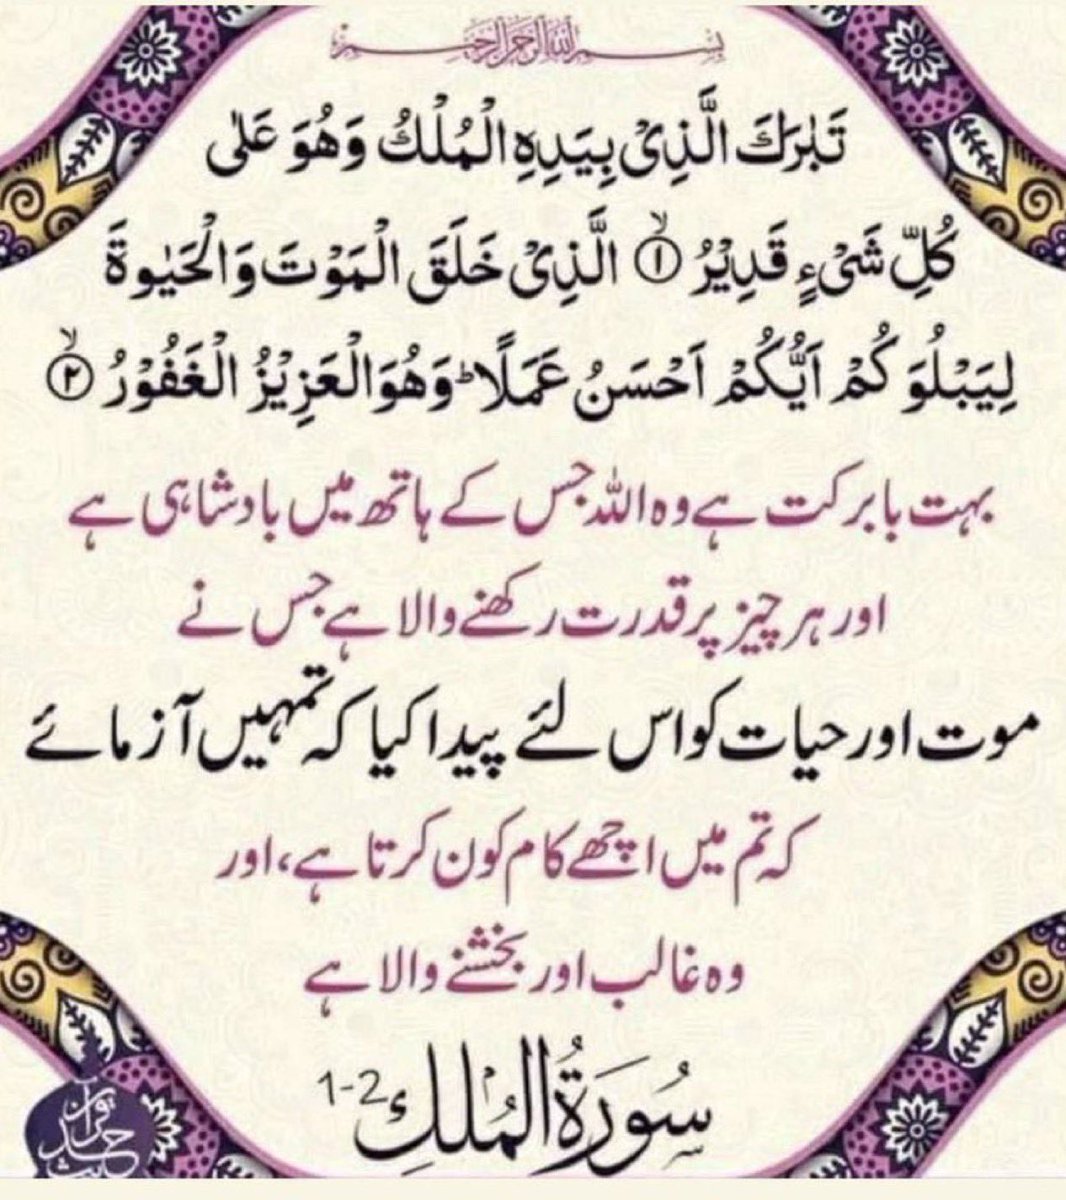 بسم الله الرحمن الرحيم
تَبٰرَكَ الَّذِیْ بِیَدِهِ الْمُلْكُ وَهُوَ عَلٰى
كُلِّ شَیْءٍ قَدِیْرُ ۙ۱ الَّذِیْ خَلَقَ الْمَوْتَ وَالْحَیٰوةَ
لِیَبْلُوَكُمْ اَیُّكُمْ اَحْسَنُ عَمَلًا ؕ وَهُوَ الْعَزِیْزُ الْغَفُوْرُ ۙ۲
بہت بابرکت ہے وہ اللہ جس کے ہاتھ میں بادشاہی ہے
اور ہر چیز پر قدرت رکھنے والا ہے جس نے
موت اور حیات کو اس لئے پیدا کیا کہ تمہیں آزمائے
کہ تم میں اچھے کام کون کرتا ہے، اور
وہ غالب اور بخشنے والا ہے
سُورَةُ المُلكِ 1-2
قرآن حدیث